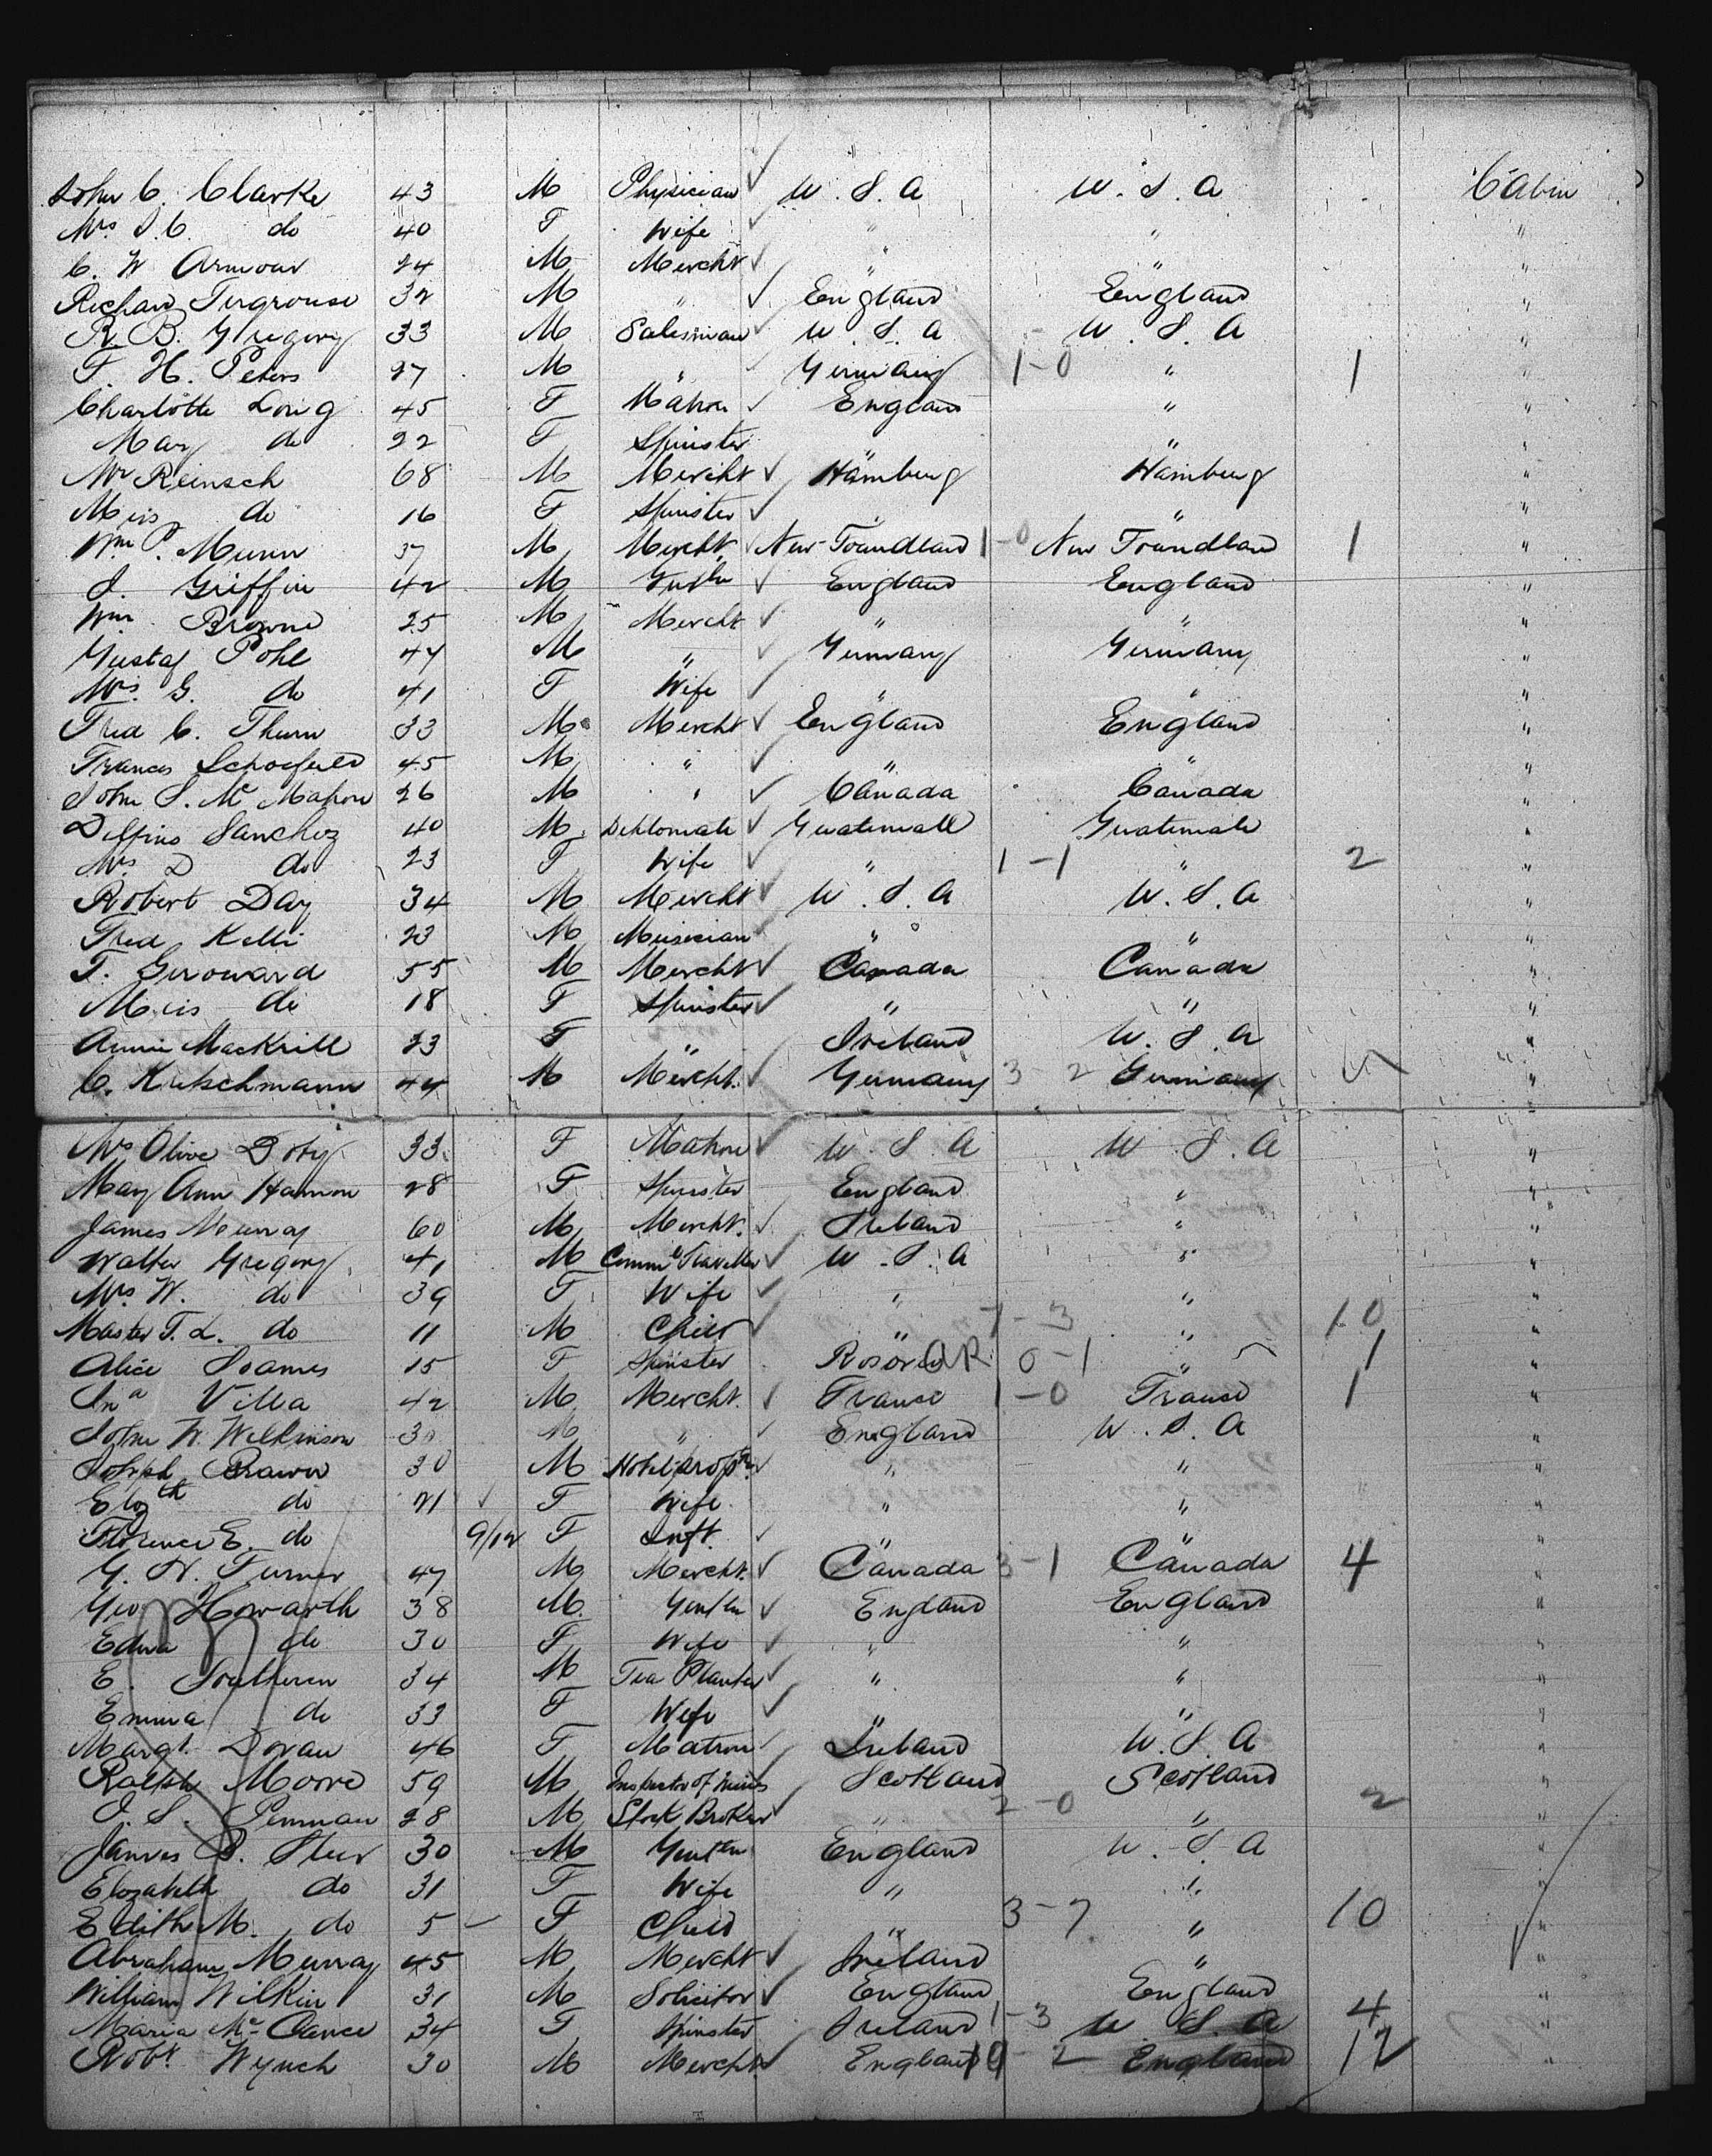 John C. Clarke 43 M Physician U.S.A U.S.A Cabin
Mrs J.C. do 40 F Wife " " "
C. W Armour 24 M Mercht " " "
Richard 32 M " England England "
R. B. Gregory 33 M Salesman U.S.A U.S.A "
F. H. Peters 27 M " Germany 1-0 " 1 "
Charlotte Long 45 F Matron England " "
Mary do 22 F Spinster " " "
Mr Reinsch 68 M Mercht Hamburg Hamburg "
Miss do 16 F Spinster " " "
Wm P. Munn 37 M Mercht. New Foundland 1-0 New Foundland 1 "
J. Griffin 42 M Gentln England England "
Wm Browne 25 M Mercht " " "
Gustaf Pohl 47 M " Germany Germany "
Mrs. G. do 41 F Wife " " "
Fred C. Thurn 33 M Mercht England England "
Frances Schofield 45 M " " " "
John S. Mc Mahon 26 M " Canada Canada "
Delfino Sanchez 40 M Diplomate Guatemall Guatemala "
Mrs D do 23 F Wife " 1-1 " 2 "
Robert Day 34 M Mercht U.S.A U.S.A "
Fred Kelli 23 M Musician " " "
F. Gerouard 55 M Mercht Canada Canada "
Miss do 18 F Spinster " " "
Annie Mackrill 23 F " Ireland U.S.A "
C. Kutschmann 44 M Mercht. Germany 3-2 Germany 5 "
Mrs Olive Doty 33 F Matron U S A U S A "
Mary Ann Hannon 28 F Spinster England " "
James Murray 60 M Mercht. Ireland " "
Walter Gregory 41 M Comml Traveller U.S.A " "
Mrs W. do 39 F Wife " " "
Master F.L. do 11 M Child " 7-3 " 10 "
Alice Soames 15 F Spinster AR 0-1 " 1 "
Jna Villa 42 M Mercht. France 1-0 France 1 "
John W. Wilkinson M " England U.S.A "
Joseph Brown 30 M Hotel propr " " "
Elizth do 21 F Wife " " "
Florence E. do 9/12 F Inft. " " "
G. H. Turner 47 M Mercht. Canada 3-1 Canada 4 "
Geo Howarth 38 M. Gentln England England "
Edna do 30 F Wife " " "
E. Southern 34 M Tea Planter " " "
Emma do 33 F Wife " " "
Margt. Doran 46 F Matron Ireland U.S.A "
Ralph Moore 59 M Inspector of Mines Scotland Scotland "
J. S. Penman 28 M Stock Broker " 2-0 " 2 "
James B. Steer 30 M Gentln England U.S.A "
Elizabeth do 31 F Wife " " "
Edith M. do 5 F Child " 3-7 " 10 "
Abraham Murray 45 M Mercht Ireland " "
William Wilkin 31 M Solicitor England England "
Maria Mc Cance 34 F Spinster Ireland 1-3 U S A 4 "
Robt Wynch 30 M Mercht. England 10-2 England 12 "